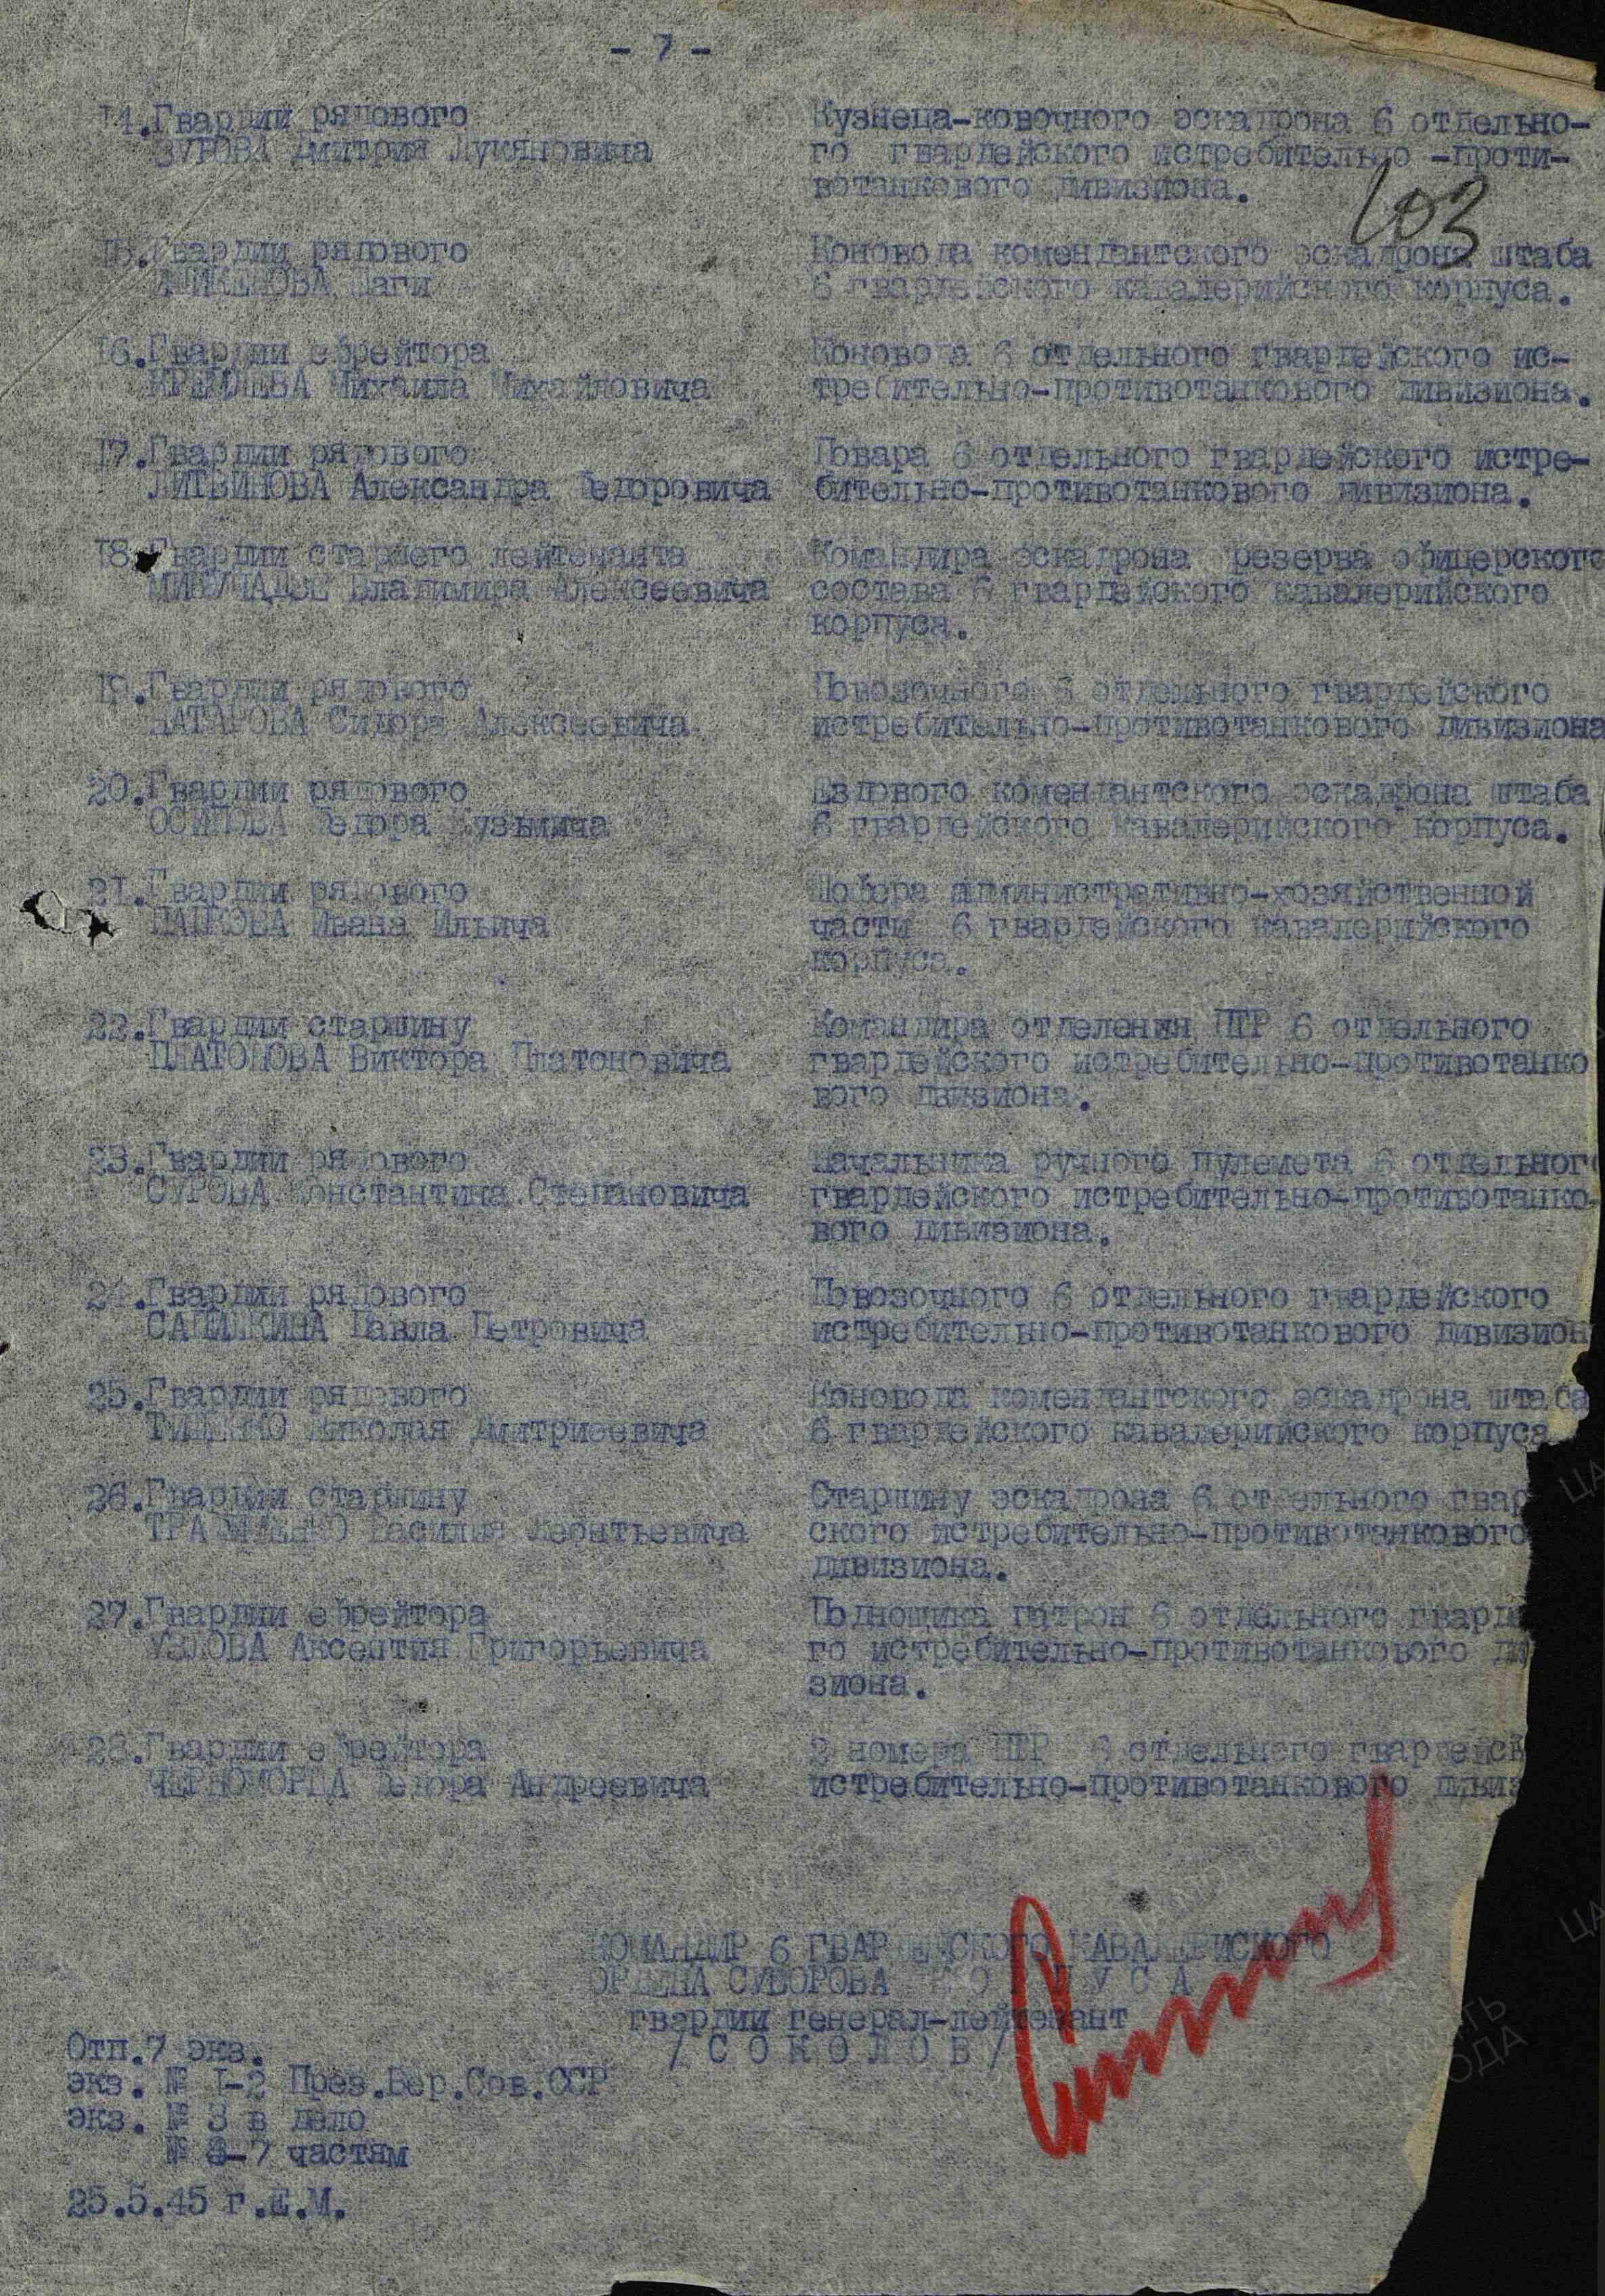 - 7 -
103
14.Гвардии рядового
ЗУРОВА Дмитрия Лукяновича
Кузнеца-ковочного эскадрона 6 отдельно-
го гвардейского истребительно -проти-
вотанкового дивизиона.
15.Гвардии рядового
Шаги
Коновода комендантского эскадрона штаба
6 гвардейского кавалерийского корпуса.
16.Гвардии ефрейтора
Михаила Михайловича
Коновода 6 отдельного гвардейского ис-
требительно-противотанкового дивизиона.
17.Гвардии рядового
ЛИТВИНОВА Александра Федоровича
Повара 6 отдельного гвардейского истре-
бительно-противотанкового дивизиона.
18.Гвардии старшего лейтенанта
Владимира Алексеевича
Командира эскадрона резерва офицерского
состава 6 гвардейского кавалерийского
корпуса.
19.Гвардии рядового
Сидора Алексеевича
Повозочного 6 отдельного гвардейского
истребительно-противотанкового дивизиона
20.Гвардии рядового
ОСИПОВА Федора Кузьмича
Ездового комендантского эскадрона штаба
6 гвардейского кавалерийского корпуса.
21.Гвардии рядового
Ивана Ильича
Шофера административно-хозяйственной
части 6 гвардейского кавалерийского
корпуса.
22.Гвардии старшину
ПЛАТОНОВА Виктора Платоновича
Командира отделения ПТР 6 отдельного
гвардейского истребительно-противотанко
вого дивизиона.
23.Гвардии рядового
СУРОВА Константина Степановича
Начальника ручного пулемета 6 отдельного
гвардейского истребительно-противотанко-
вого дивизиона.
24.Гвардии рядового
Павла Петровича
Повозочного 6 отдельного гвардейского
истребительно-противотанкового дивизион
25.Гвардии рядового
ТИЩЕНКО Николая Дмитриевича
Коновода комендантского эскадрона штаба
6 гвардейского кавалерийского корпуса
26.Гвардии старшину
Василия Леонтьевича
Старшину эскадрона 6 отдельного гвар
ского истребительно-противотанкового
дивизиона.
27.Гвардии ефрейтора
УЗЛОВА Аксентия Григорьевича
Подносчика патрон 6 отдельного гвард
го истребительно-противотанкового ди
зиона.
28.Гвардии ефрейтора
ЧЕРНОМОРДА Федора Андреевича
2 номера ПТР 6 отдельного гвардейск
истребительно-противотанкового дивиз
КОМАНДИР 6 ГВАРДЕЙСКОГО КАВАЛЕРИЙСКОГО
ОРДЕНА СУВОРОВА К О Р П У С А
гвардии генерал-лейтенант
/ С О К О Л О В /
Отп.7 экз.
экз. № 1-2 През.Вер.Сов.ССР
экз. № 3 в дело
№ -7 частям
25.5.45 г.Е.М.